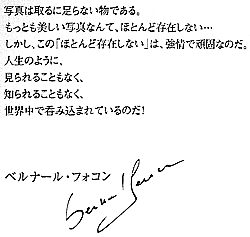 写真は取るに足らない物である。
もっとも美しい写真なんて、ほとんど存在しない…
しかし、この「ほとんど存在しない」は、強情で頑固なのだ。
人生のように、
見られることもなく、
知られることもなく、
世界中で呑み込まれているのだ!
ベルナール・フォコン